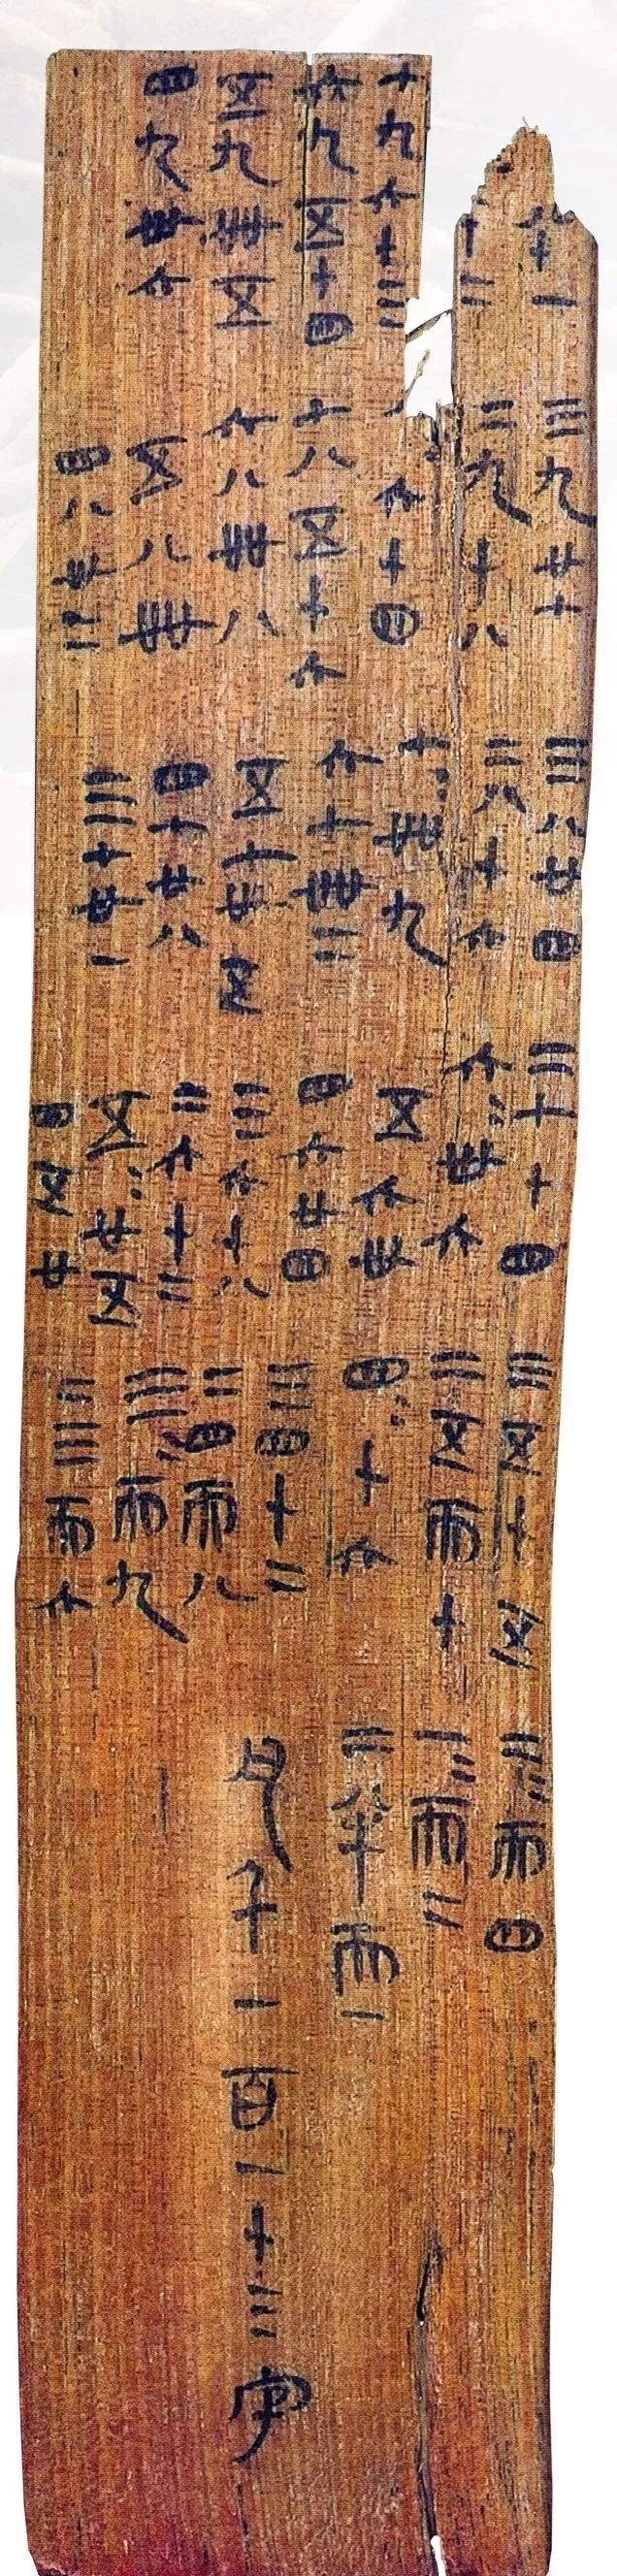 八十一
十二
七九六十三
六九五十四
五九卌五
四九卅六
三九廿七
二九十八
八=六十四
七八五十六
六八卌八
五八卌
四八卅二
三八廿四
二八十六
七=卌九
六七卌二
五七卅五
四七廿八
三七廿一
二七十四
六=卅六
五六卅
四六廿四
三六十八
二六十二
五=廿五
四五廿
三五十五
二五而十
四=十六
三四十二
二四而八
三=而九
二三而六
二=而四
一=而二
二半而一
凡千一百一十三字